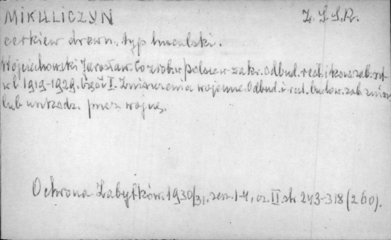 MIKULICZYN Z.S.S.R.
cerkiew drewn. typ huculski.
Wojciechowski Jarosław. Co zrob. w polsce w zakr. Odbud. rest. i kons. zab. szt.
w l. 1919-1929. Część I. Zniszczenia wojenne. Odbud. i rest. budow. zab. zniszcz.
lub uszkodz. przez wojnę,
Ochrona Zabytków. 1930/31, zesz. 1-4, cz. II str. 243-318 (260).